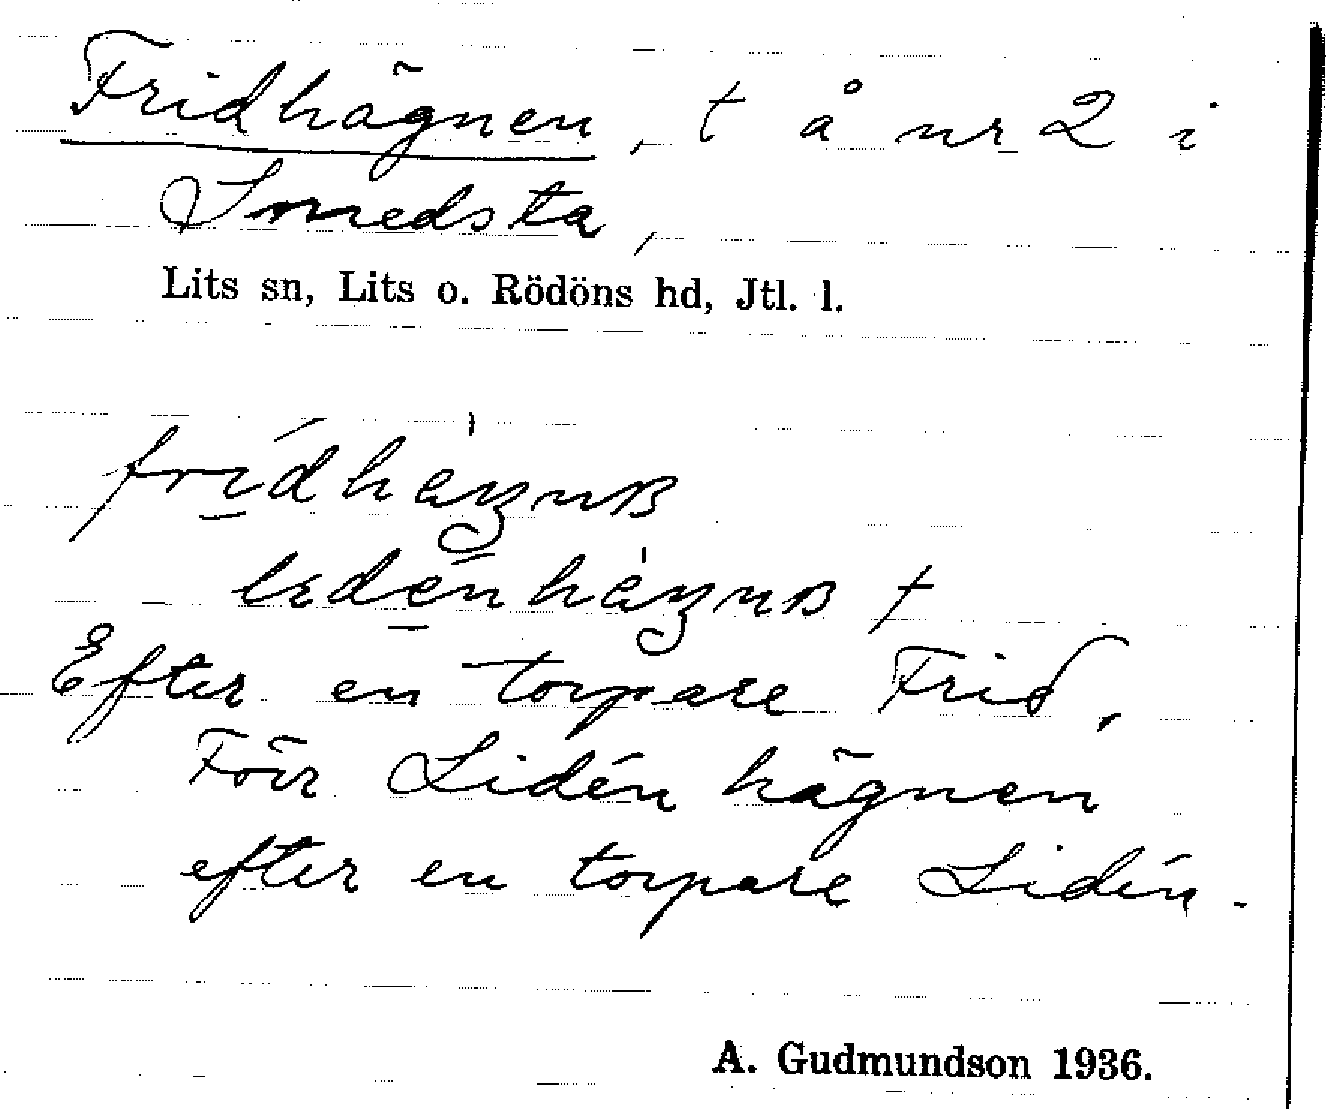 Fridhägnen, t å nr 2 i
Smedsta,
Lits sn, Lits o. Rödöns hd, Jtl. l.
Efter en torpare Frid,
Förr Lidénhägnen
efter en torpare Lidén.
A. Gudmundson 1936.